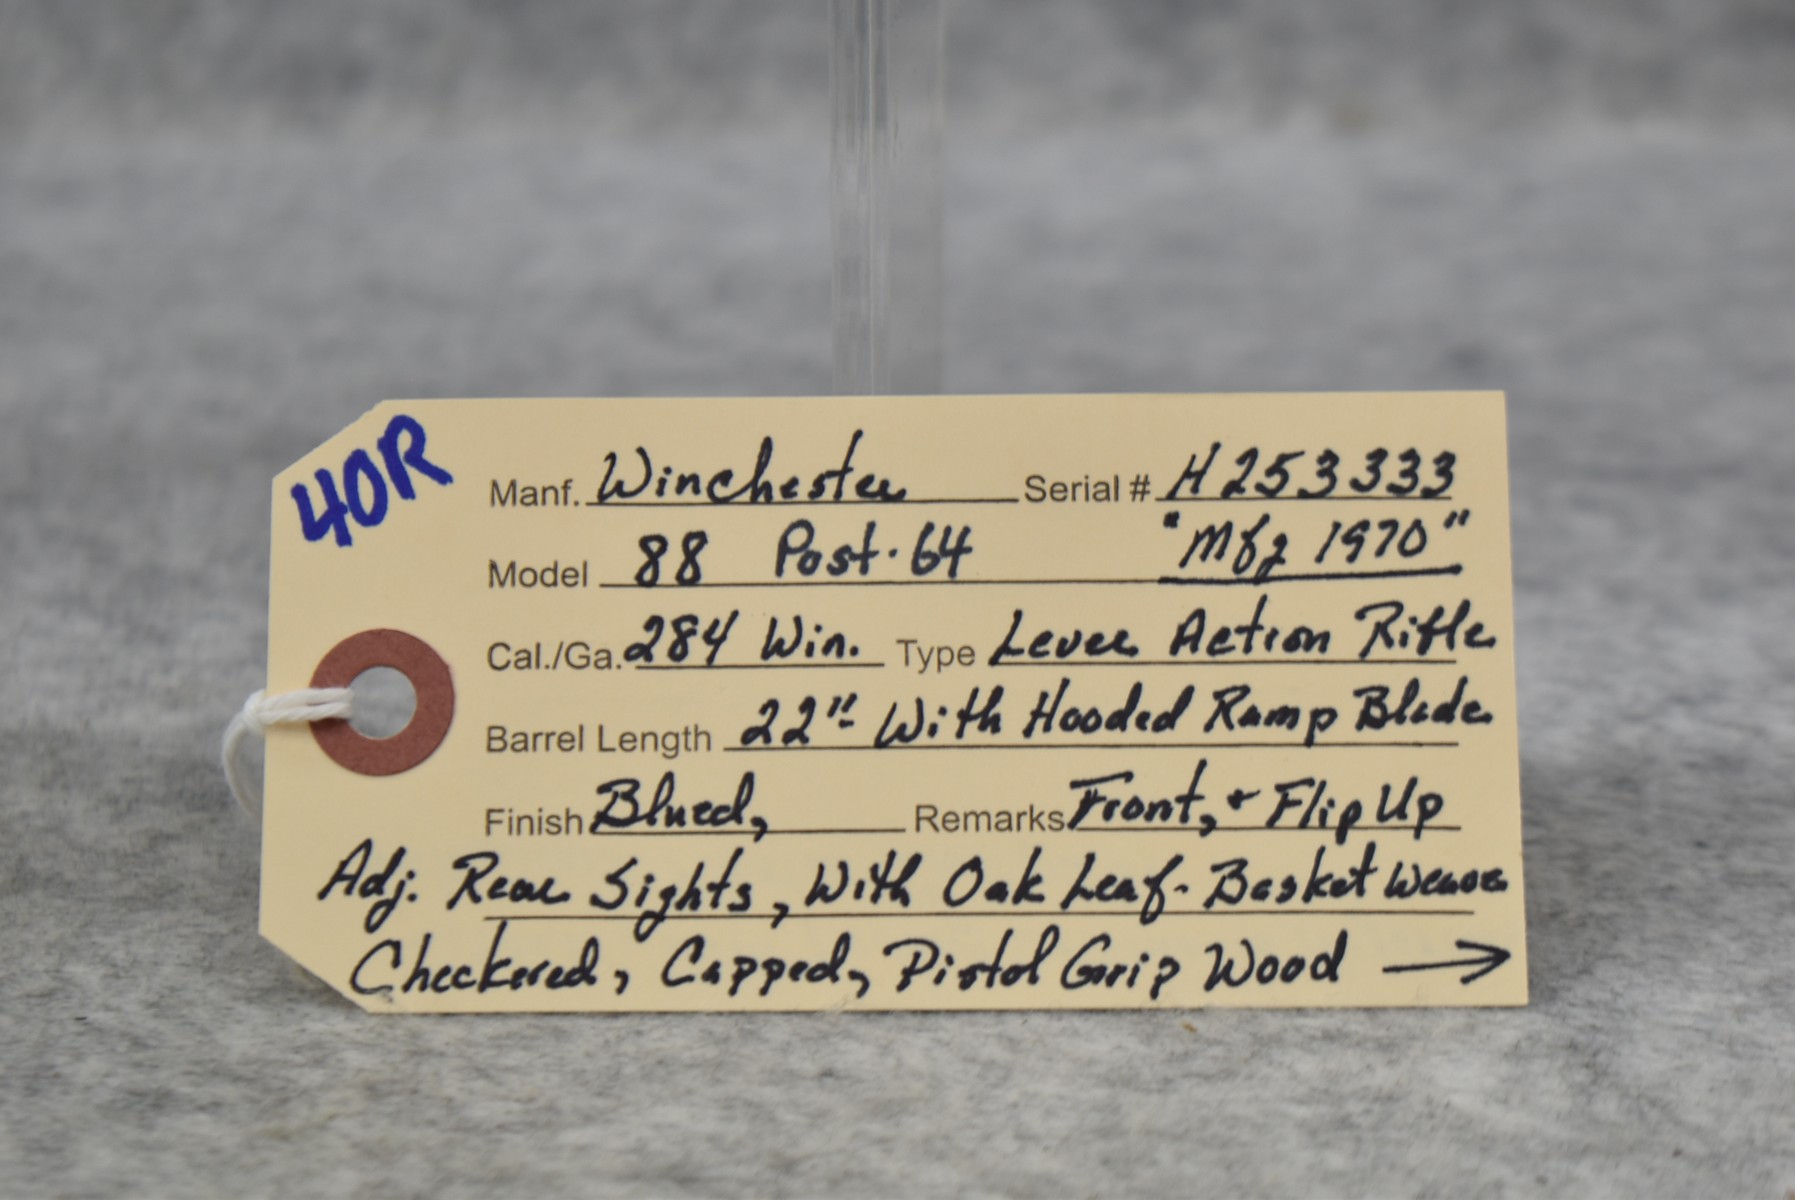 40R
Manf. Winchester Serial # H253333
Model 88 Post-64 "Mfg 1970"
Cal./Ga. 284 Win. Type Lever Action Rifle
Barrel Length 22" With Hooded Ramp Blade
Finish Blued, Remarks Front, + Flip Up
Adj. Rear Sights, With Oak Leaf-Basket Weave
Checkered, Capped, Pistol Grip Wood →